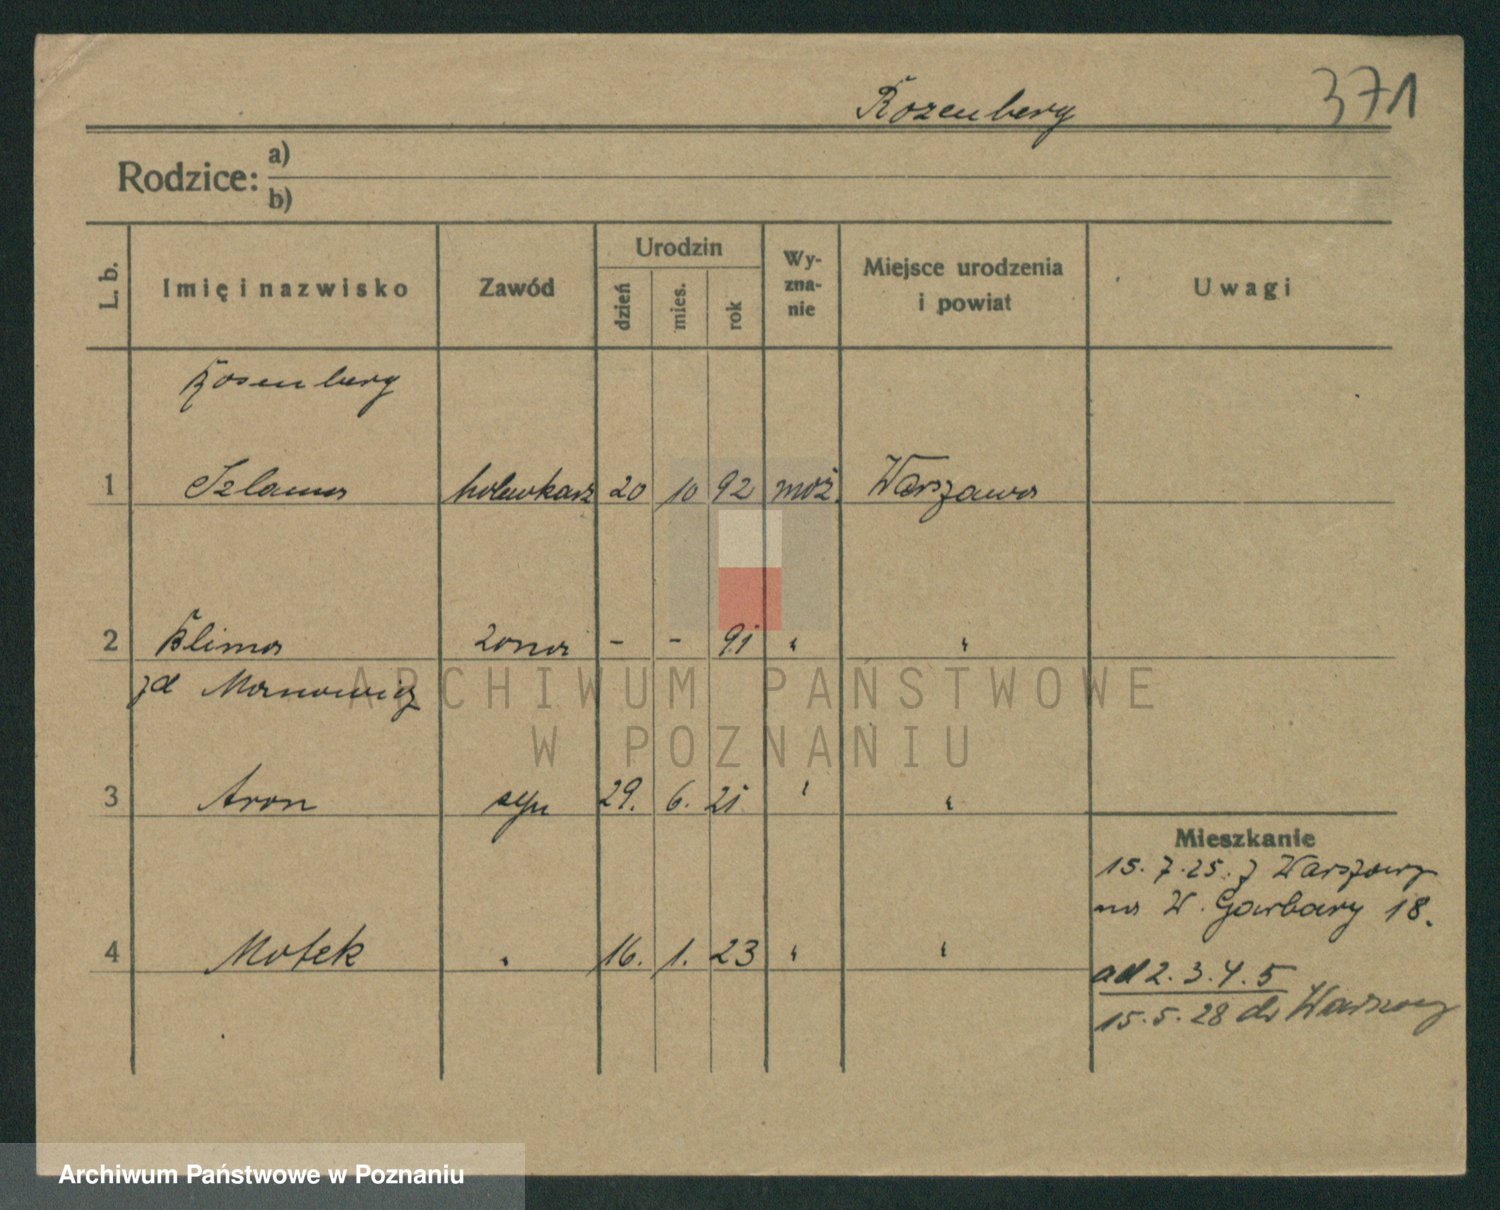 Rozenberg 371
Rodzice: a)
b)
L. b. Imię i nazwisko Zawód Urodzin dzień mies. rok Wy-zna-nie Miejsce urodzenia i powiat Uwagi
Rosenberg
1 Szlama holewkarz 20 10 92 mojż. Warszawa
2 Blima żona - - 91 " "
zd Manowicz
3 Aron syn 29. 6. 21 " "
Mieszkanie
15.7.25. z Warszawy
na W. Garbary 18.
4 Motek " 16. 1. 23 " "
ad 2.3.4.5
15.5.28 do Warszawy
ARCHIWUM PAŃSTWOWE
W POZNANIU
Archiwum Państwowe w Poznaniu